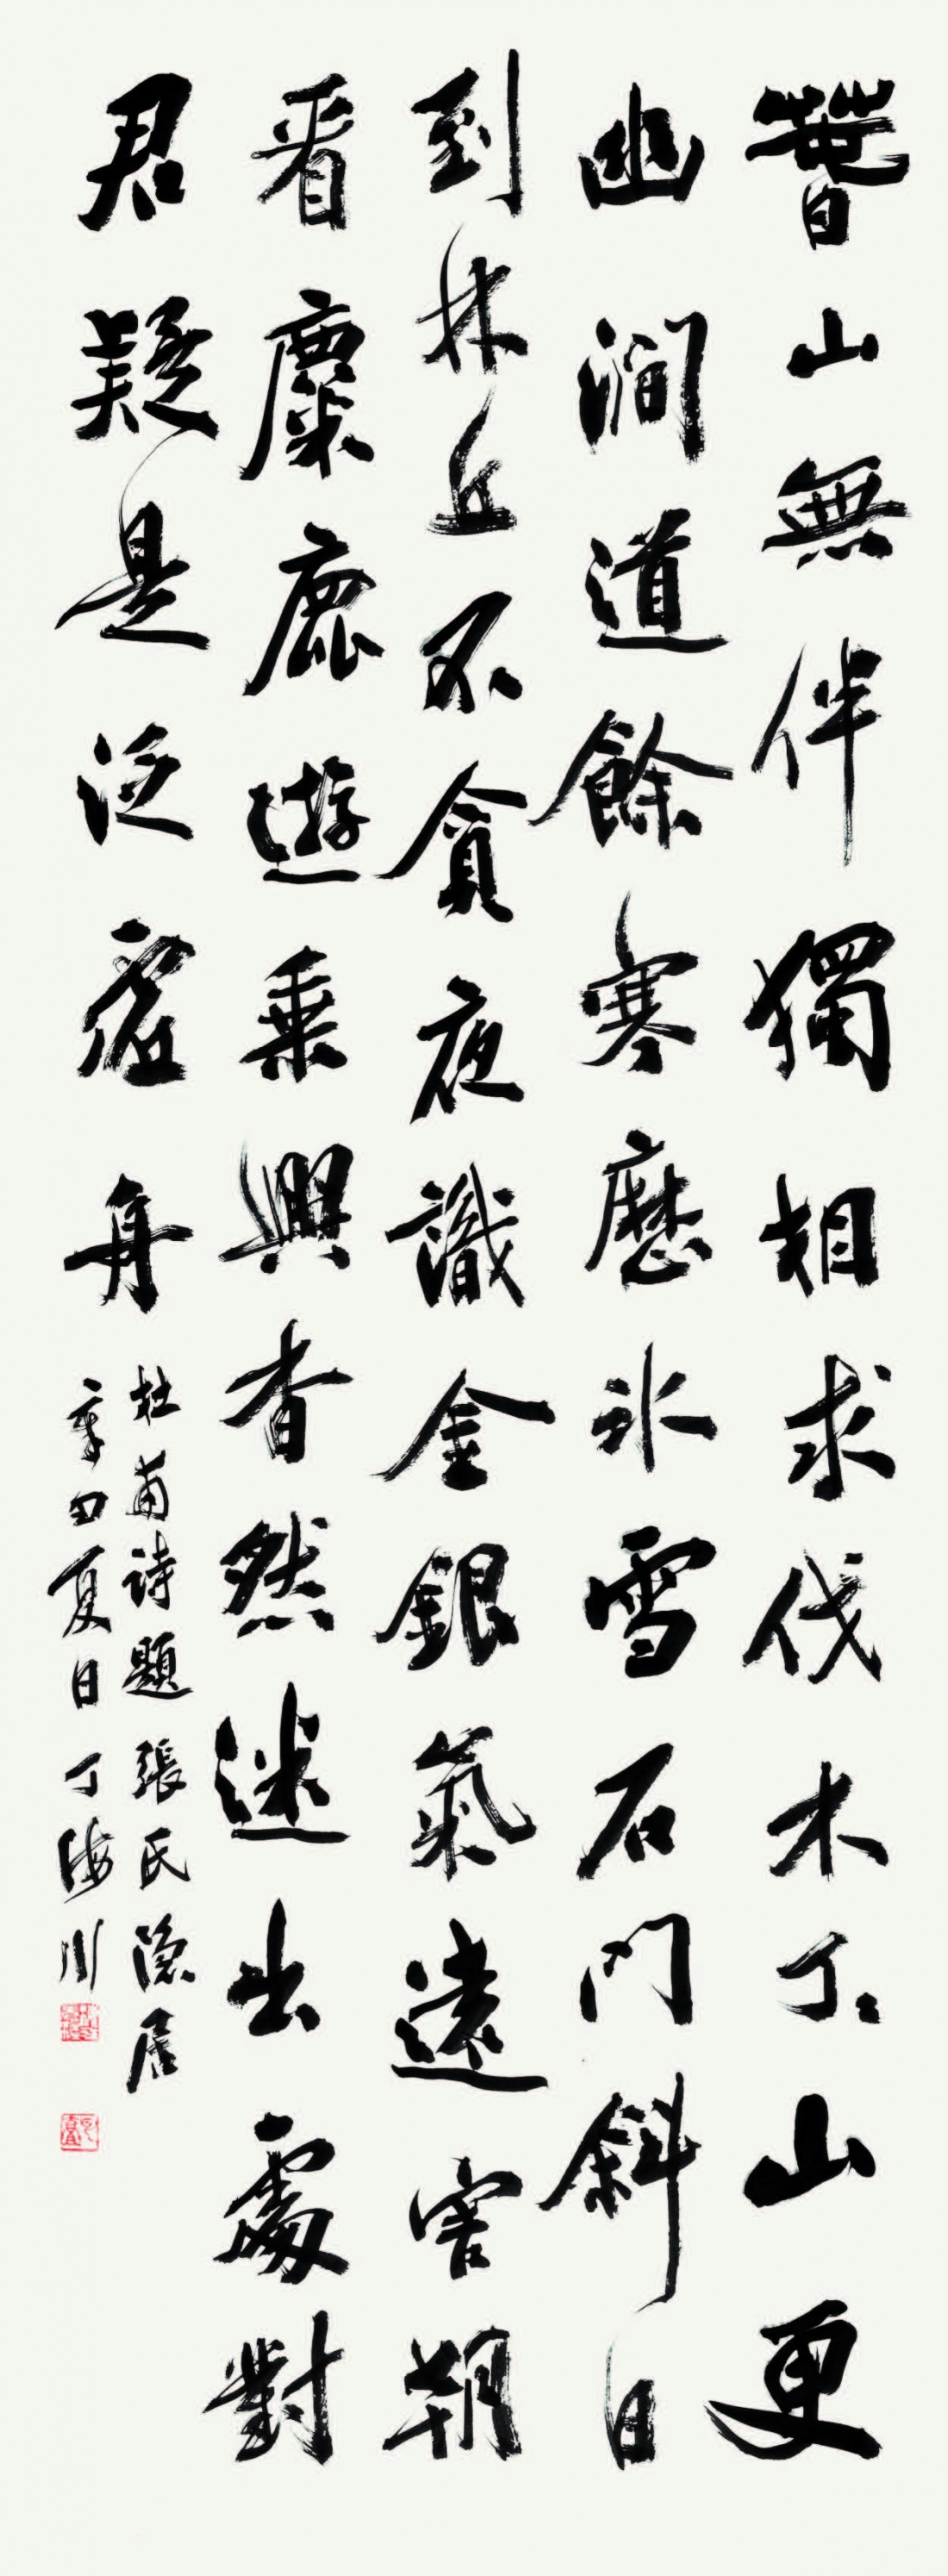 萅山無伴獨相求伐木丁丁山更
幽澗道餘寒歷冰雪石門斜日
到林丘不貪夜識金銀氣遠害朝
看麋鹿遊乘興杳然迷出處對
君疑是泛虛舟
杜甫诗題張氏隐居
辛丑夏日丁海川